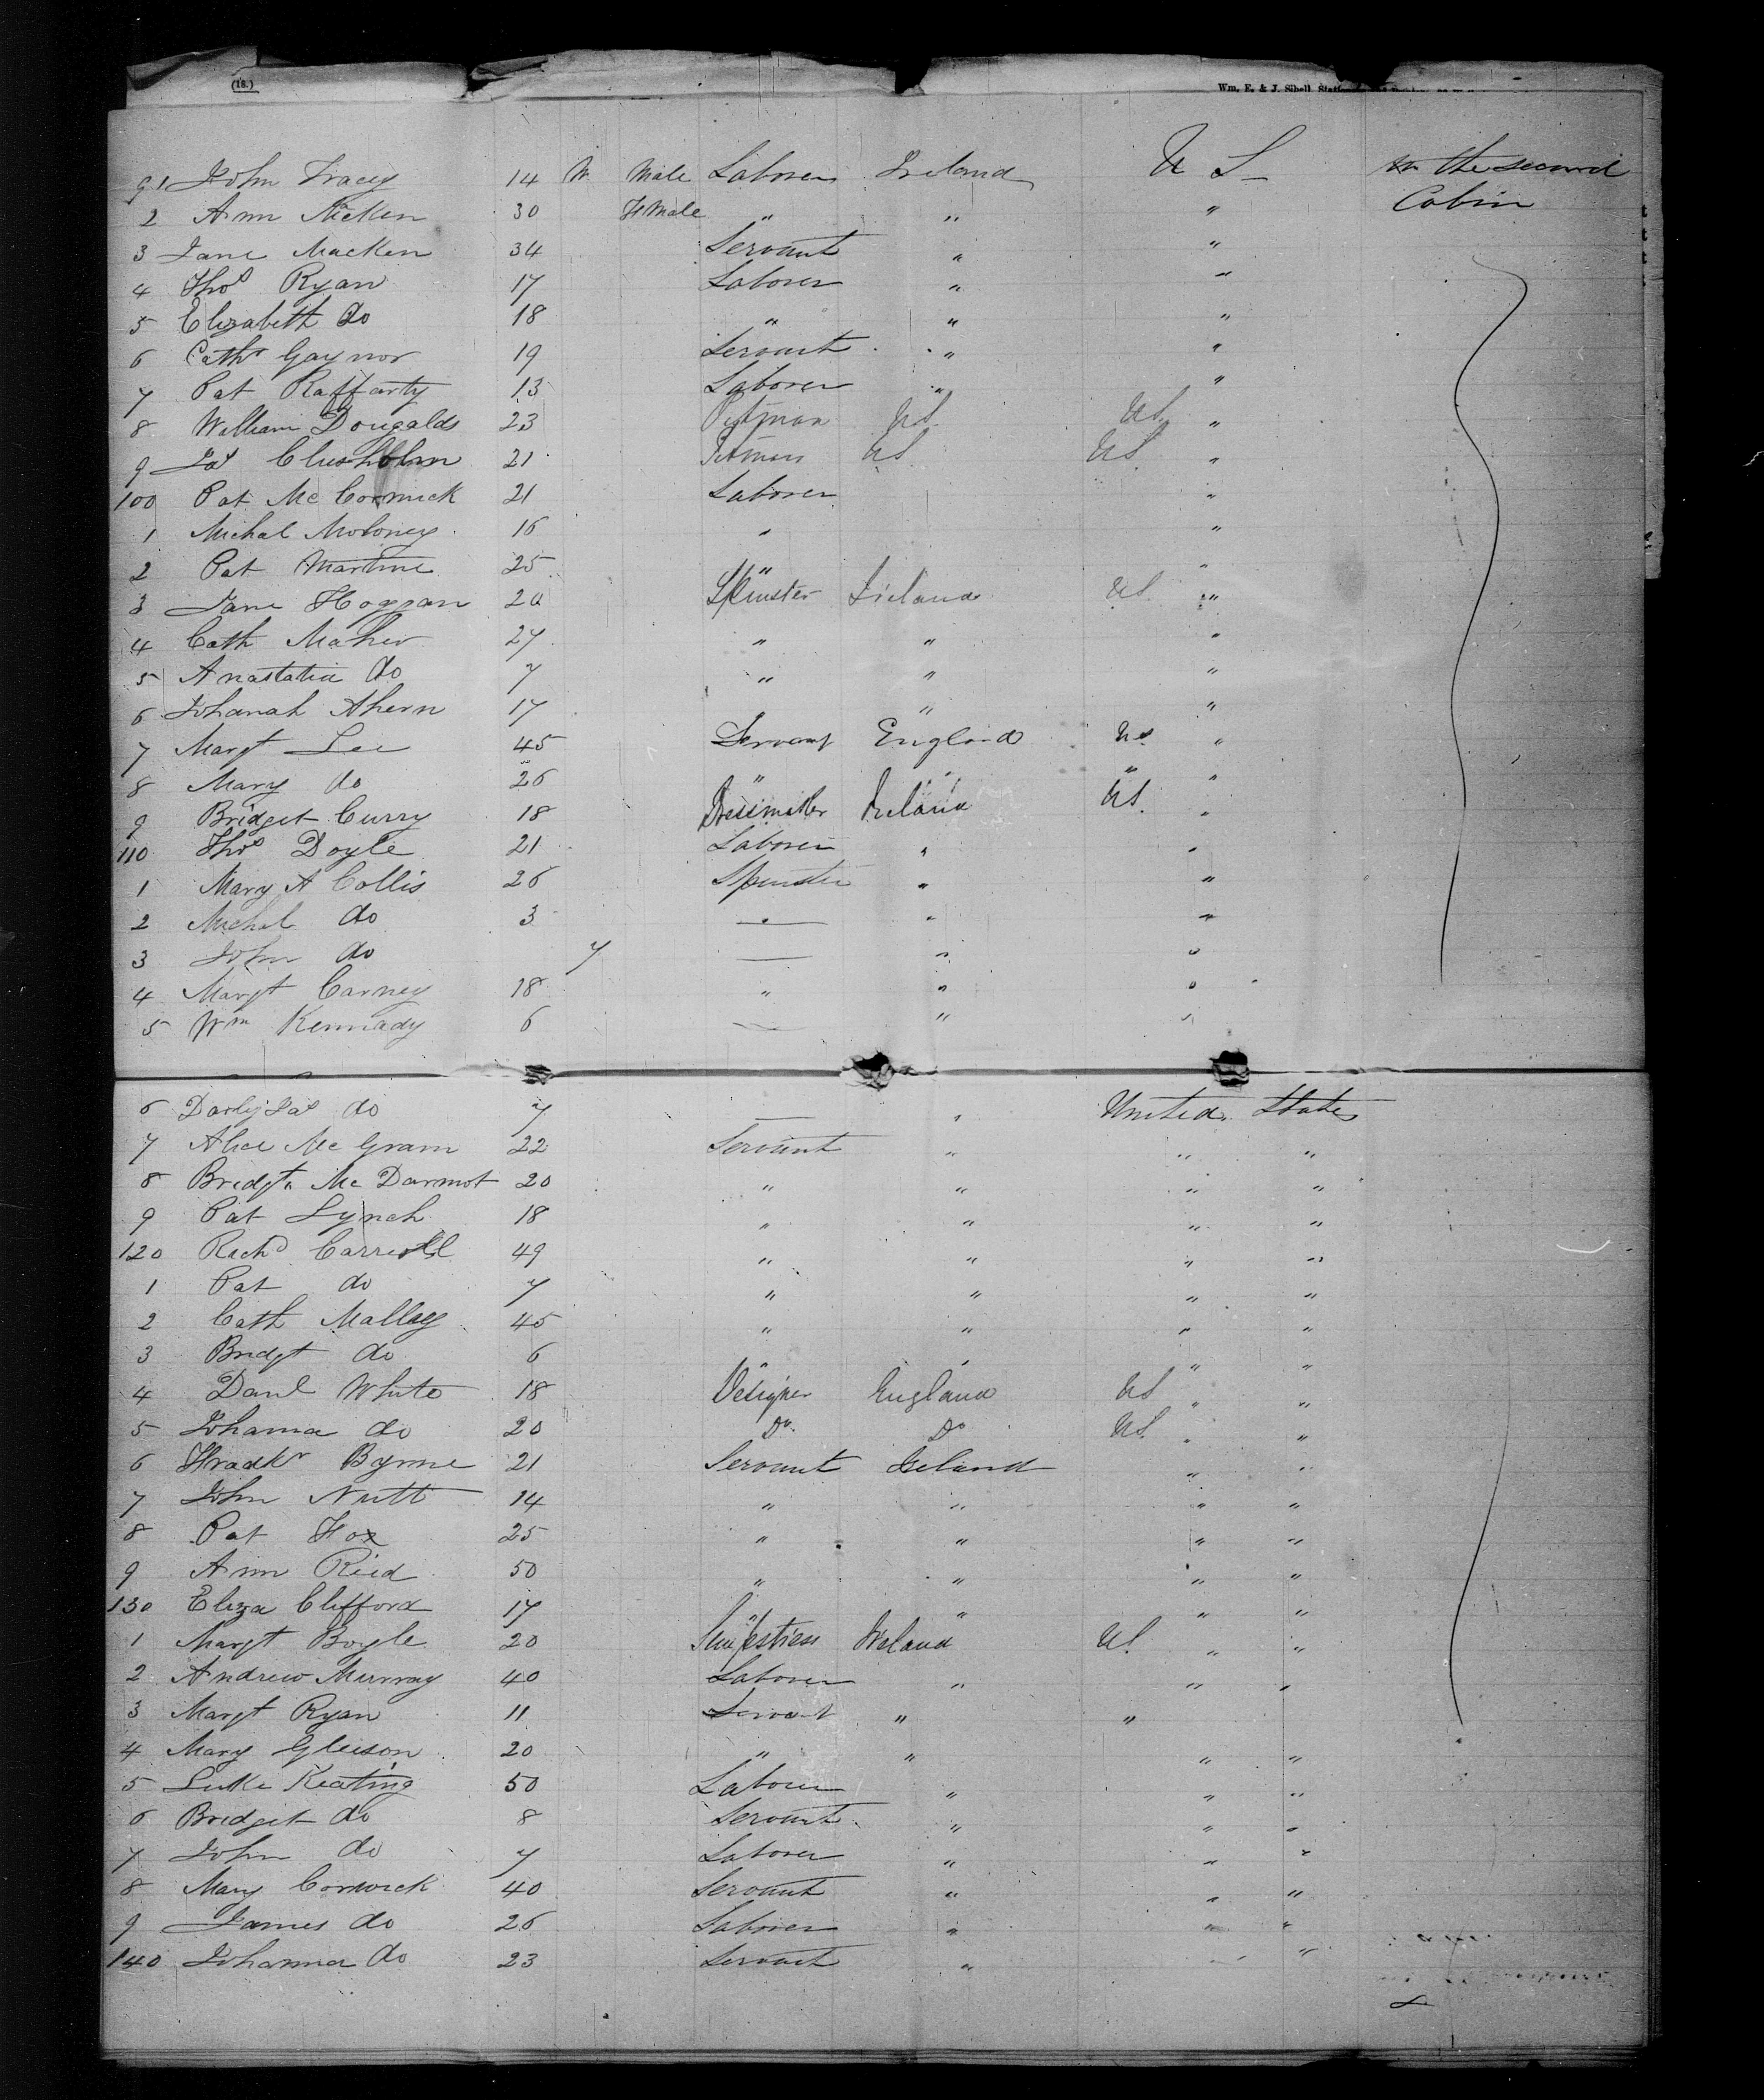 (18.) Wm. E. & J. Sibell
91 John Tracey 14 Male Laborer Ireland U S in the second
2 Ann Nicken 30 Female " " " Cabin
3 Jane Macken 34 Servant " "
4 Thos Ryan 17 Laborer " "
5 Elizabeth do 18 " " "
6 Cath Gaynor 19 Servant " "
7 Pat Raffarty 13 Laborer " "
8 William Dougalds 23 US US "
9 Jas Chisholm 21 US US "
100 Pat McCormick 21 Laborer "
1 Michal Moloney 16 " "
2 Pat Martine 25 " "
3 Jane Hoggan 20 Spinster Ireland US "
4 Cath Maher 27 " " "
5 Anastatia do 7 " " "
6 Johanah Ahern 17 " "
7 Margt Lee 45 Servant England US "
8 Mary do 26 " " " "
9 Bridget Curry 18 Dressmaker Ireland US "
110 Thos Doyle 21 Laborer " "
1 Mary A Collis 26 Spinster " "
2 Michal do 3 — " "
3 John do 7 — " "
4 Margt Carney 18 " " "
5 Wm Kennady 6 — " "
6 do 7 — " United States
7 Alice McGram 22 Servant " " "
8 Bridgt McDarmot 20 " " " "
9 Pat Lynch 18 " " " "
120 Richd Carroll 49 " " " "
1 Pat do 7 " " " "
2 Cath Malley 45 " " " "
3 Bridgt do 6 " " " "
4 Danl White 18 Designer England US " "
5 Johanna do 20 Do Do US " "
6 Byrne 21 Servant Ireland " "
7 John Nutt 14 " " " "
8 Pat Fox 25 " " " "
9 Ann Reid 50 " " " "
130 Eliza Clifford 17 " " " "
1 Margt Boyle 20 Ireland US " "
2 Andrew Murray 40 Laborer " " "
3 Margt Ryan 11 Servant " "
4 Mary Gleeson 20 " " " "
5 Luke Keating 50 Laborer " " "
6 Bridget do 8 Servant " " "
7 John do 7 Laborer " " "
8 Mary Cormick 40 Servant " " "
9 James do 26 Laborer " " "
140 Johanna do 23 Servant " " "